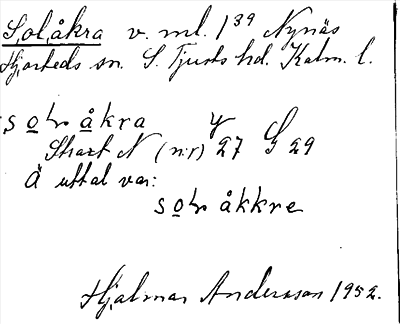 Solåkra v. ml. 1³⁹ Nynäs
Hjorteds sn. S. Tjusts hd. Kalm. l.
solråkra y G 29
Strax N (n:r) 27
Ä uttal var:
solråkkre
Hjalmar Andersson 1952.